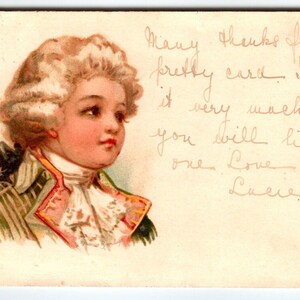 Many thanks f
pretty card. I
it very much
you will li
one. Love
Lucie